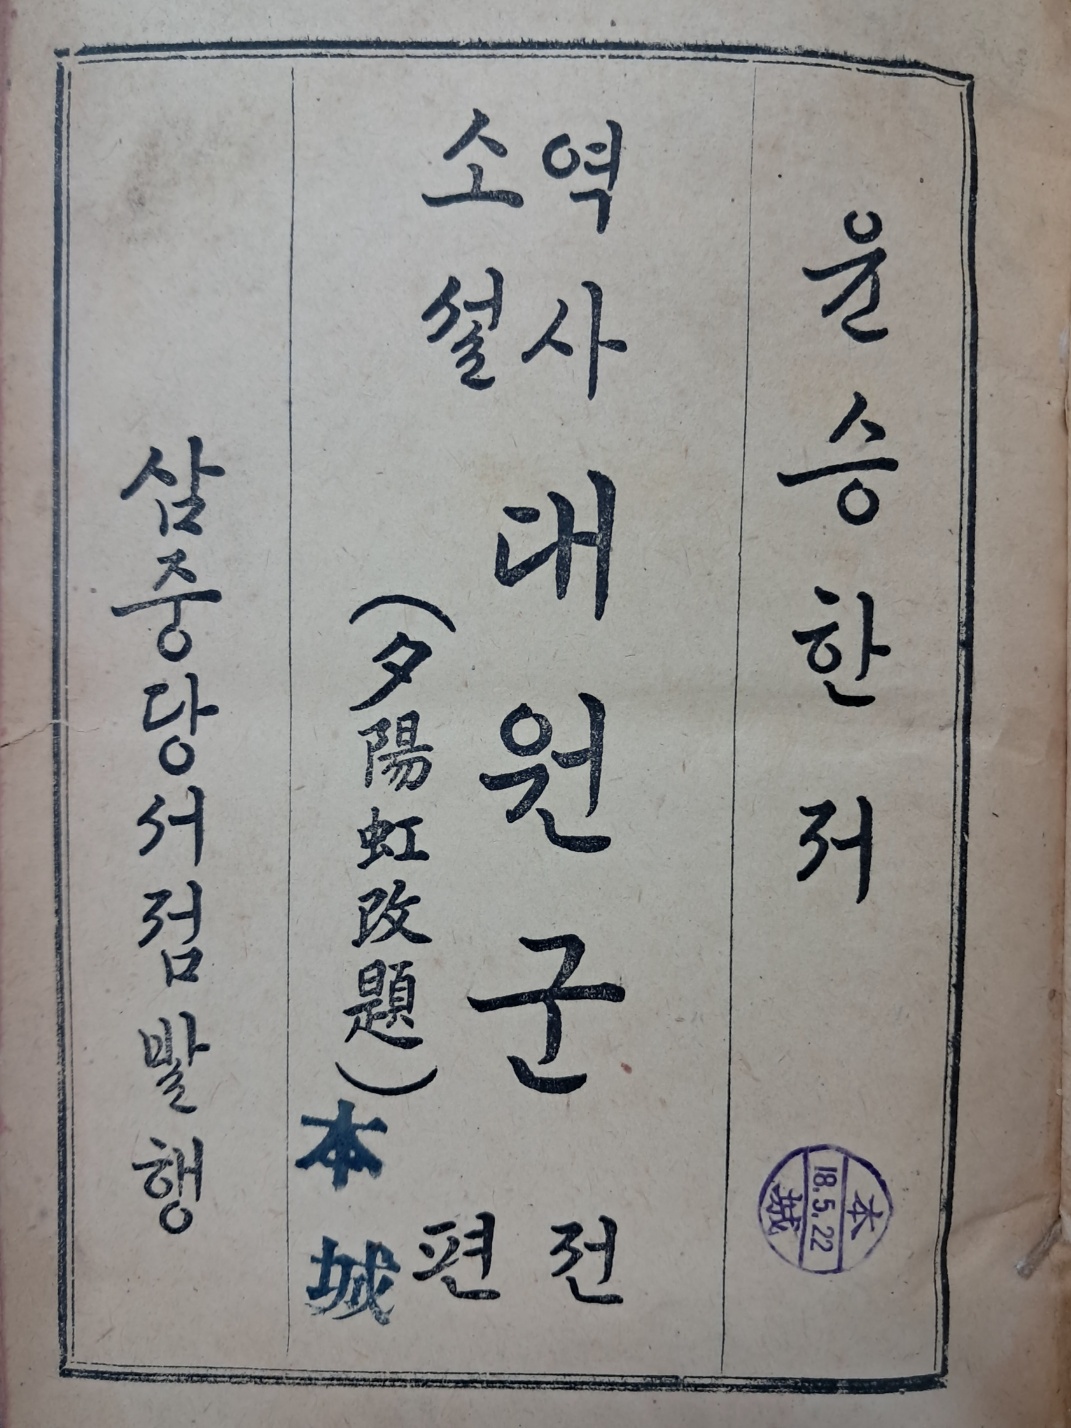 윤승한 저
역사
소설
대원군
전
편
(夕陽虹改題)
本城
삼중당서점 발행
本
18.5.22
城